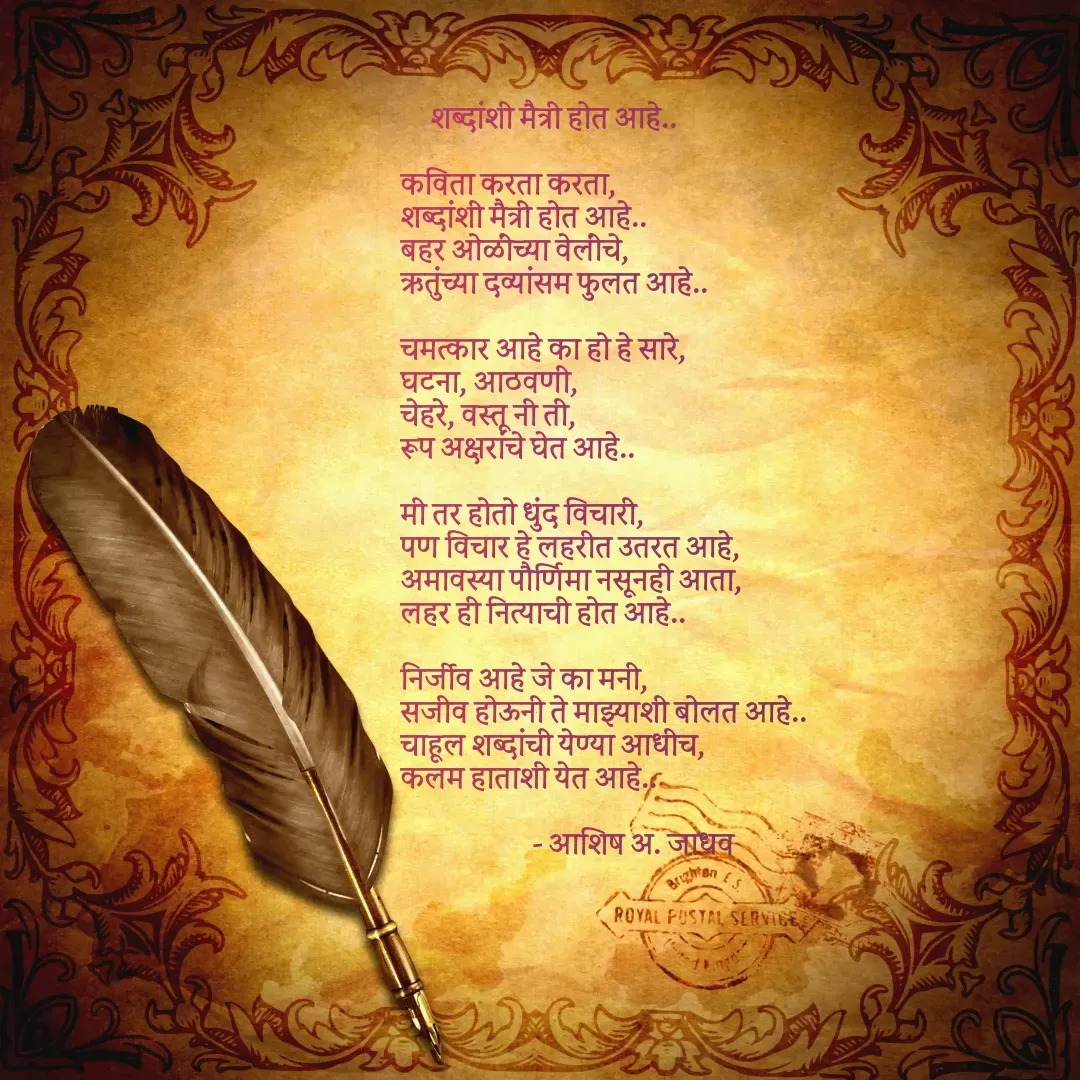 शब्दांशी मैत्री होत आहे..
कविता करता करता,
शब्दांशी मैत्री होत आहे..
बहर ओळींच्या वेलींचे,
ऋतुंच्या दव्यांसम फुलत आहे..
चमत्कार आहे का हो हे सारे,
घटना, आठवणी,
चेहरे, वस्तू नी ती,
रूप अक्षरांचे घेत आहे..
मी तर होतो धुंद विचारी,
पण विचार हे लहरीत उतरत आहे,
अमावस्या पौर्णिमा नसूनही आता,
लहर ही नित्याची होत आहे..
निर्जीव आहे जे का मनी,
सजीव होऊनी ते माझ्याशी बोलत आहे..
चाहूल शब्दांची येण्या आधीच,
कलम हाताशी येत आहे..
- आशिष अ. जाधव
Brighton E.S.
ROYAL POSTAL SERVICE